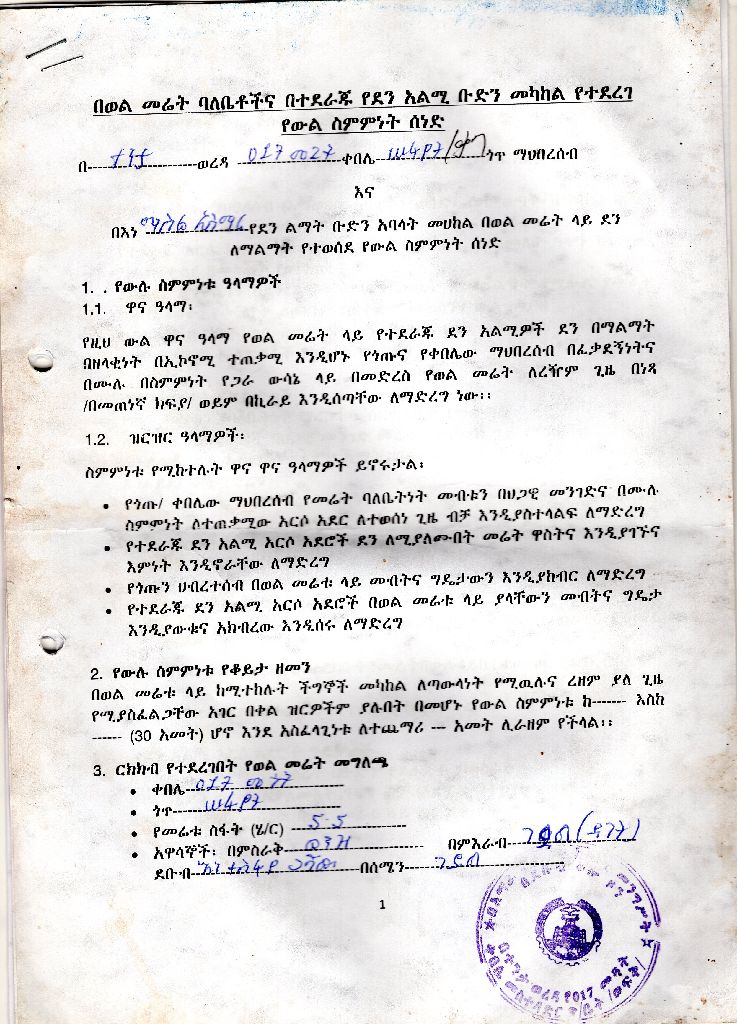 በወል መሬት ባለቤቶችና በተደራጁ የደን አልሚ ቡድን መካከል የተደረገ
የውል ስምምነት ሰነድ
በ--------------------ወረዳ --------------------ቀበሌ--------------------ጎጥ ማህበረሰብ
እና
በእነ --------------------የደን ልማት ቡድን አባላት መሀከል በወል መሬት ላይ ደን
ለማልማት የተወሰደ የውል ስምምነት ሰነድ
1. . የውሉ ስምምነቱ ዓላማዎች
1.1. ዋና ዓላማ፡
የዚህ ውል ዋና ዓላማ የወል መሬት ላይ የተደራጁ ደን አልሚዎች ደን በማልማት
በዘላቂነት በኢኮኖሚ ተጠቃሚ እንዲሆኑ የጎጡና የቀበሌው ማህበረሰብ በፈቃደኝነትና
በሙሉ በስምምነት የጋራ ውሳኔ ላይ በመድረስ የወል መሬት ለረዥም ጊዜ በነጻ
/በመጠነኛ ክፍያ/ ወይም በኪራይ እንዲሰጣቸው ለማድረግ ነው፡፡
1.2. ዝርዝር ዓላማዎች፡
ስምምነቱ የሚከተሉት ዋና ዋና ዓላማዎች ይኖሩታል፡
• የጎጡ/ ቀበሌው ማህበረሰብ የመሬት ባለቤትነት መብቱን በህጋዊ መንገድና በሙሉ
ስምምነት ለተጠቃሚው አርሶ አደር ለተወሰነ ጊዜ ብቻ እንዲያስተላልፍ ለማድረግ
• የተደራጁ ደን አልሚ አርሶ አደሮች ደን ለሚያለሙበት መሬት ዋስትና እንዲያገኙና
እምነት እንዲኖራቸው ለማድረግ
• የጎጡን ህብረተሰብ በወል መሬቱ ላይ መብትና ግዴታውን እንዲያከብር ለማድረግ
• የተደራጁ ደን አልሚ አርሶ አደሮች በወል መሬቱ ላይ ያላቸውን መብትና ግዴታ
እንዲያውቁና አክብረው እንዲሰሩ ለማድረግ
2. የውሉ ስምምነቱ የቆይታ ዘመን
በወል መሬቱ ላይ ከሚተከሉት ችግኞች መካከል ለጣውላነት የሚዉሉና ረዘም ያለ ጊዜ
የሚያስፈልጋቸው አገር በቀል ዝርዎችም ያሉበት በመሆኑ የውል ስምምነቱ ከ------- እስከ
------ (30 አመት) ሆኖ እንደ አስፈላጊነቱ ለተጨማሪ --- አመት ሊራዘም የችላል፡፡
3. ርክክብ የተደረገበት የወል መሬት መግለጫ
• ቀበሌ--------------------
• ጎጥ--------------------
• የመሬቱ ስፋት (ሄ/ር) 5.5
• አዋሳኞች፡ በምስራቅ-------------------- በምእራብ--------------------
ደቡብ-------------------- በሰሜን--------------------
1